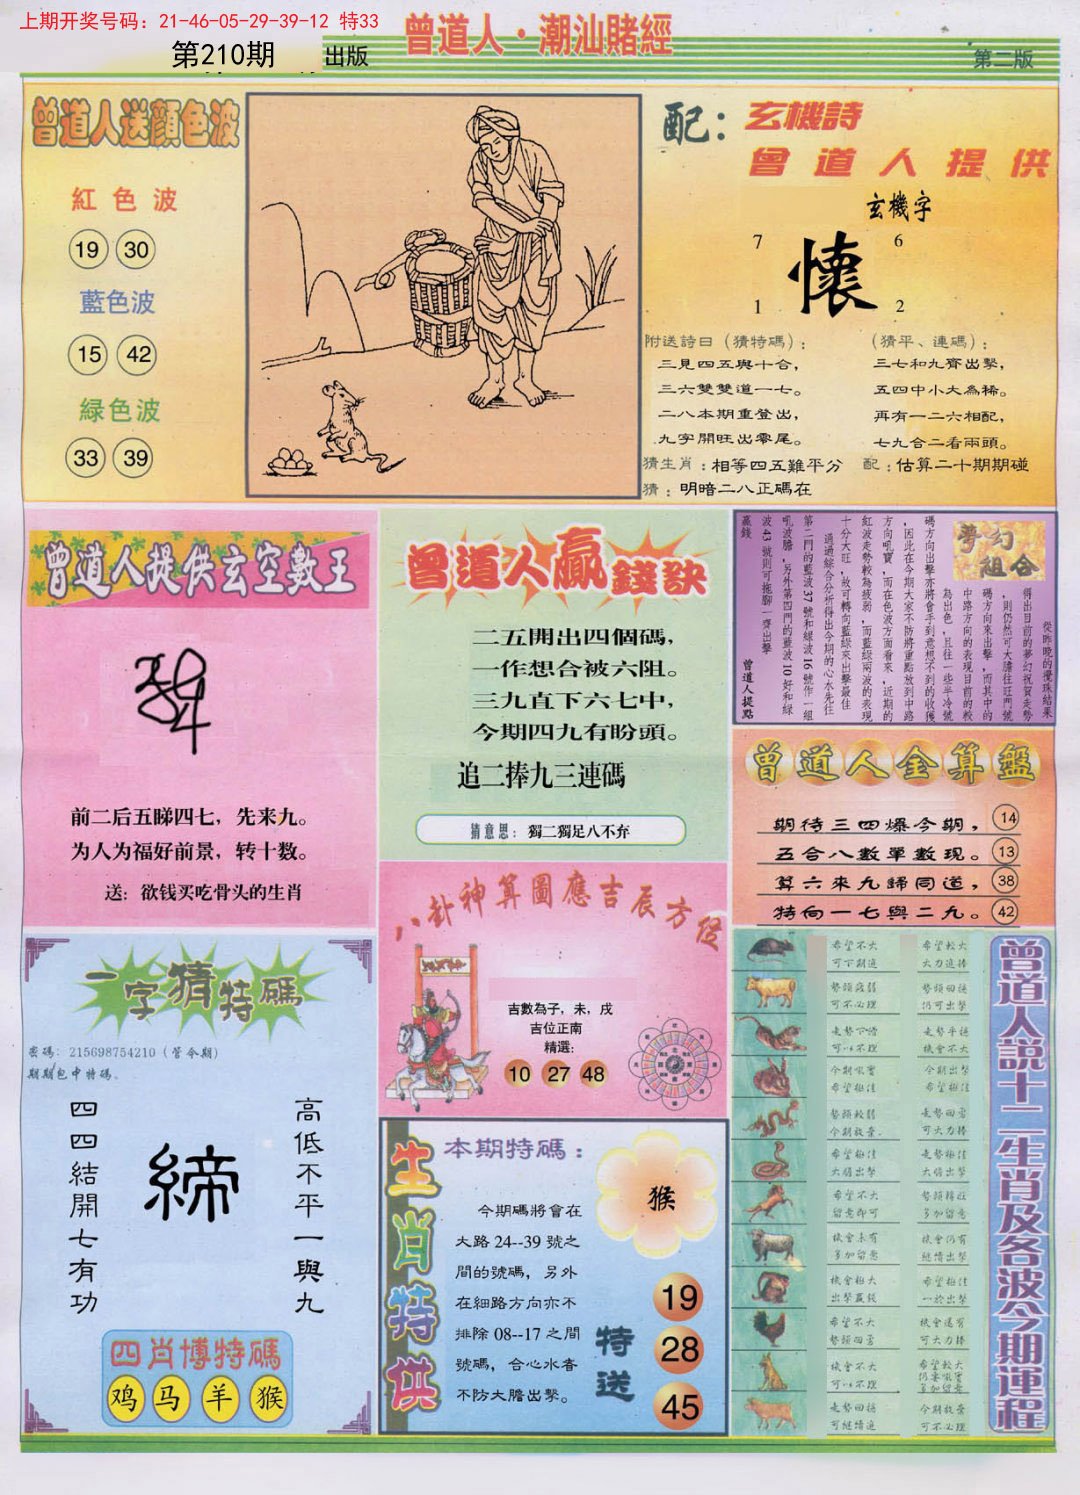 上期开奖号码：21-46-05-29-39-12 特33
第210期
出版
曾道人·潮汕賭經
第二版
曾道人送顔色波
紅色波
19 30
藍色波
15 42
緑色波
33 39
配：
玄機詩
曾道人提供
玄機字
7 6
懷
1 2
附送詩曰（猜特碼）：
三見四五與十合，
三六雙雙道一七。
二八本期重登出，
九字開旺出零尾。
（猜平、連碼）：
三七和九齊出擊，
五四中小大為稀。
再有一二六相配，
七九合二看兩頭。
猜生肖：相等四五難平分
配：估算二十期期碰
猜：明暗二八正碼在
曾道人提供玄空數王
前二后五睇四七，先来九。
为人为福好前景，转十数。
送：欲钱买吃骨头的生肖
曾道人贏錢訣
二五開出四個碼，
一作想合被六阻。
三九直下六七中，
今期四九有盼頭。
追二捧九三連碼
猜意思：獨二獨足八不弃
夢幻組合
從昨晚的攪珠結果
得出目前的夢幻祝賀走勢
，則仍然可大膽往旺門號
碼方向來出擊，而其中的
中路方向的表現目前的較
為出色，且往一些半冷號
碼方向出擊亦將會手到意想不到的收獲
，因此在今期大家不防將重點放到中路
方向吼寶，而在色波方面看來，近期的
紅波走勢較為疲弱，而藍綠兩波的表現
十分大旺，故可轉向藍綠來出擊最佳
通過綜合分析得出今期的心水先往
第二門的藍波37號和綠波16號作一組
吼波膽，另外第四門的藍波10好和綠
波43號則可拖腳一齊出擊
贏錢
曾道人提點
曾道人金算盤
期待三四爆今期， 14
五合八數單數現。 13
算六來九歸同道， 38
特向一七與二九。 42
八卦神算圖應吉辰方位
吉數為子，未，戌
吉位正南
精選：
10 27 48
一字猜特碼
密碼：215698754210（管令期）
期期包中特碼、
高低不平一與九
締
四四結開七有功
四肖博特碼
鸡 马 羊 猴
生肖特供
本期特碼：
今期碼將會在
大路24--39號之
間的號碼，另外
在細路方向亦不
排除08--17之間
號碼，合心水者
不防大膽出擊。
猴
特送
19
28
45
曾道人說十二生肖及各波今期運程
希望不大
可下期追
希望較大
大力追捧
勢頭疲弱
可不必理
勢頭回穩
仍可出擊
走勢平穩
機會不大
今期吼實
希望極佳
今期出擊
希望極佳
勢頭較弱
今期放棄
走勢回勇
可大力捧
希望極佳
大膽出擊
走勢極佳
大膽出擊
希望不大
留意即可
勢頭轉旺
多加留意
機會未有
多加留意
機會仍有
繼續出擊
機會極大
出擊贏錢
希望極佳
一於出擊
希望不大
勢頭回勇
機會還有
可大力捧
機會不大
可以不理
希望較大
仍要吼實
多加留意
走勢回穩
可繼續追
今期放棄
可不必理